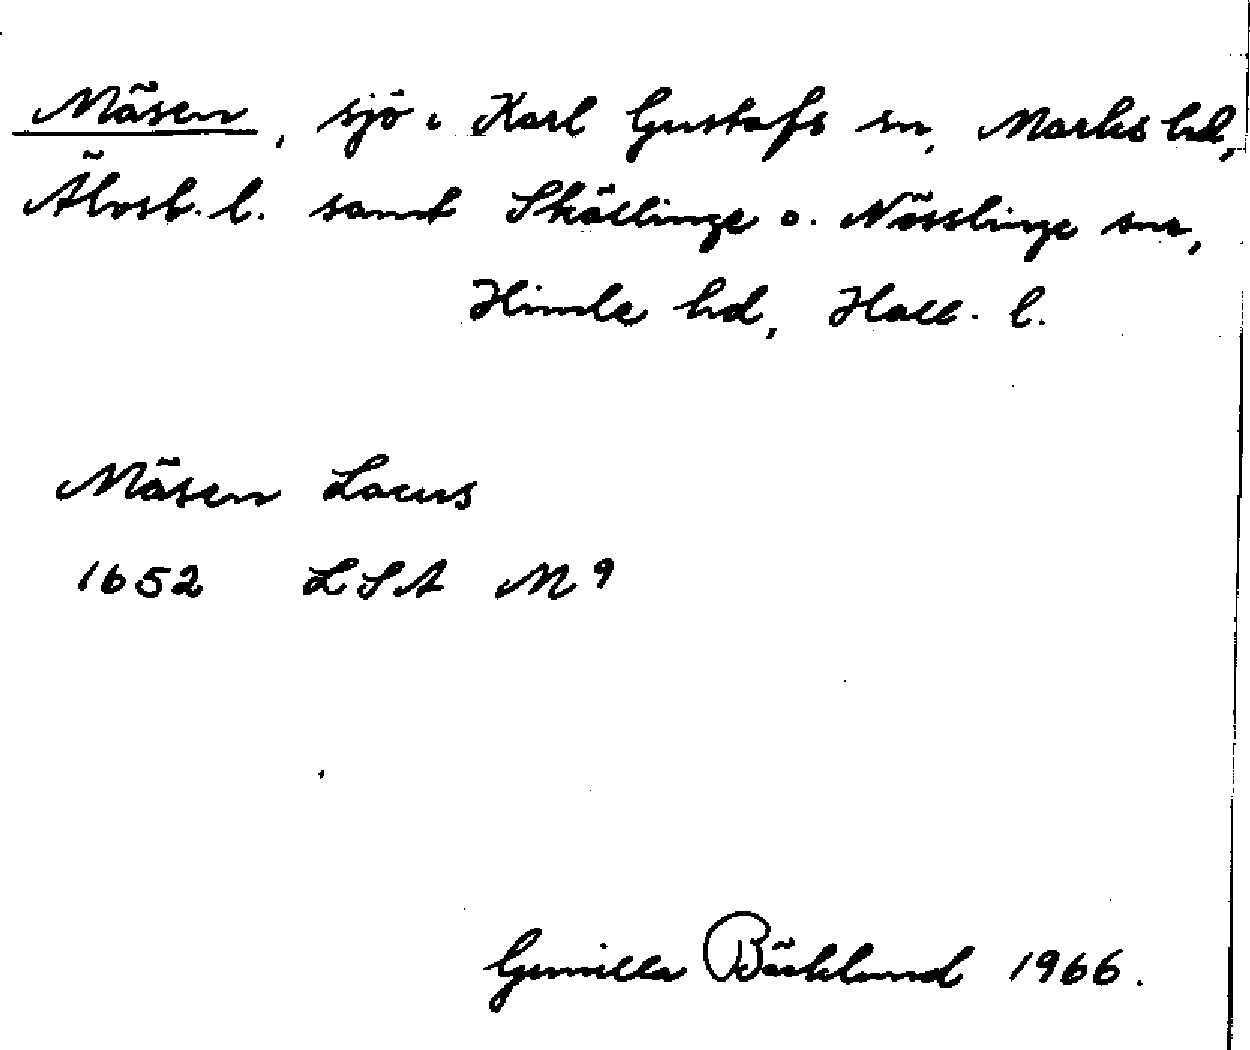 Mäsen, sjö i Karl Gustafs sn, Marks hd,
Älvsb. l. samt Skällinge o. Nösslinge snr,
Himle hd, Hall. l.
Mäsen Lacus
1652 LSA M 9
Gunilla Bäcklund 1966.